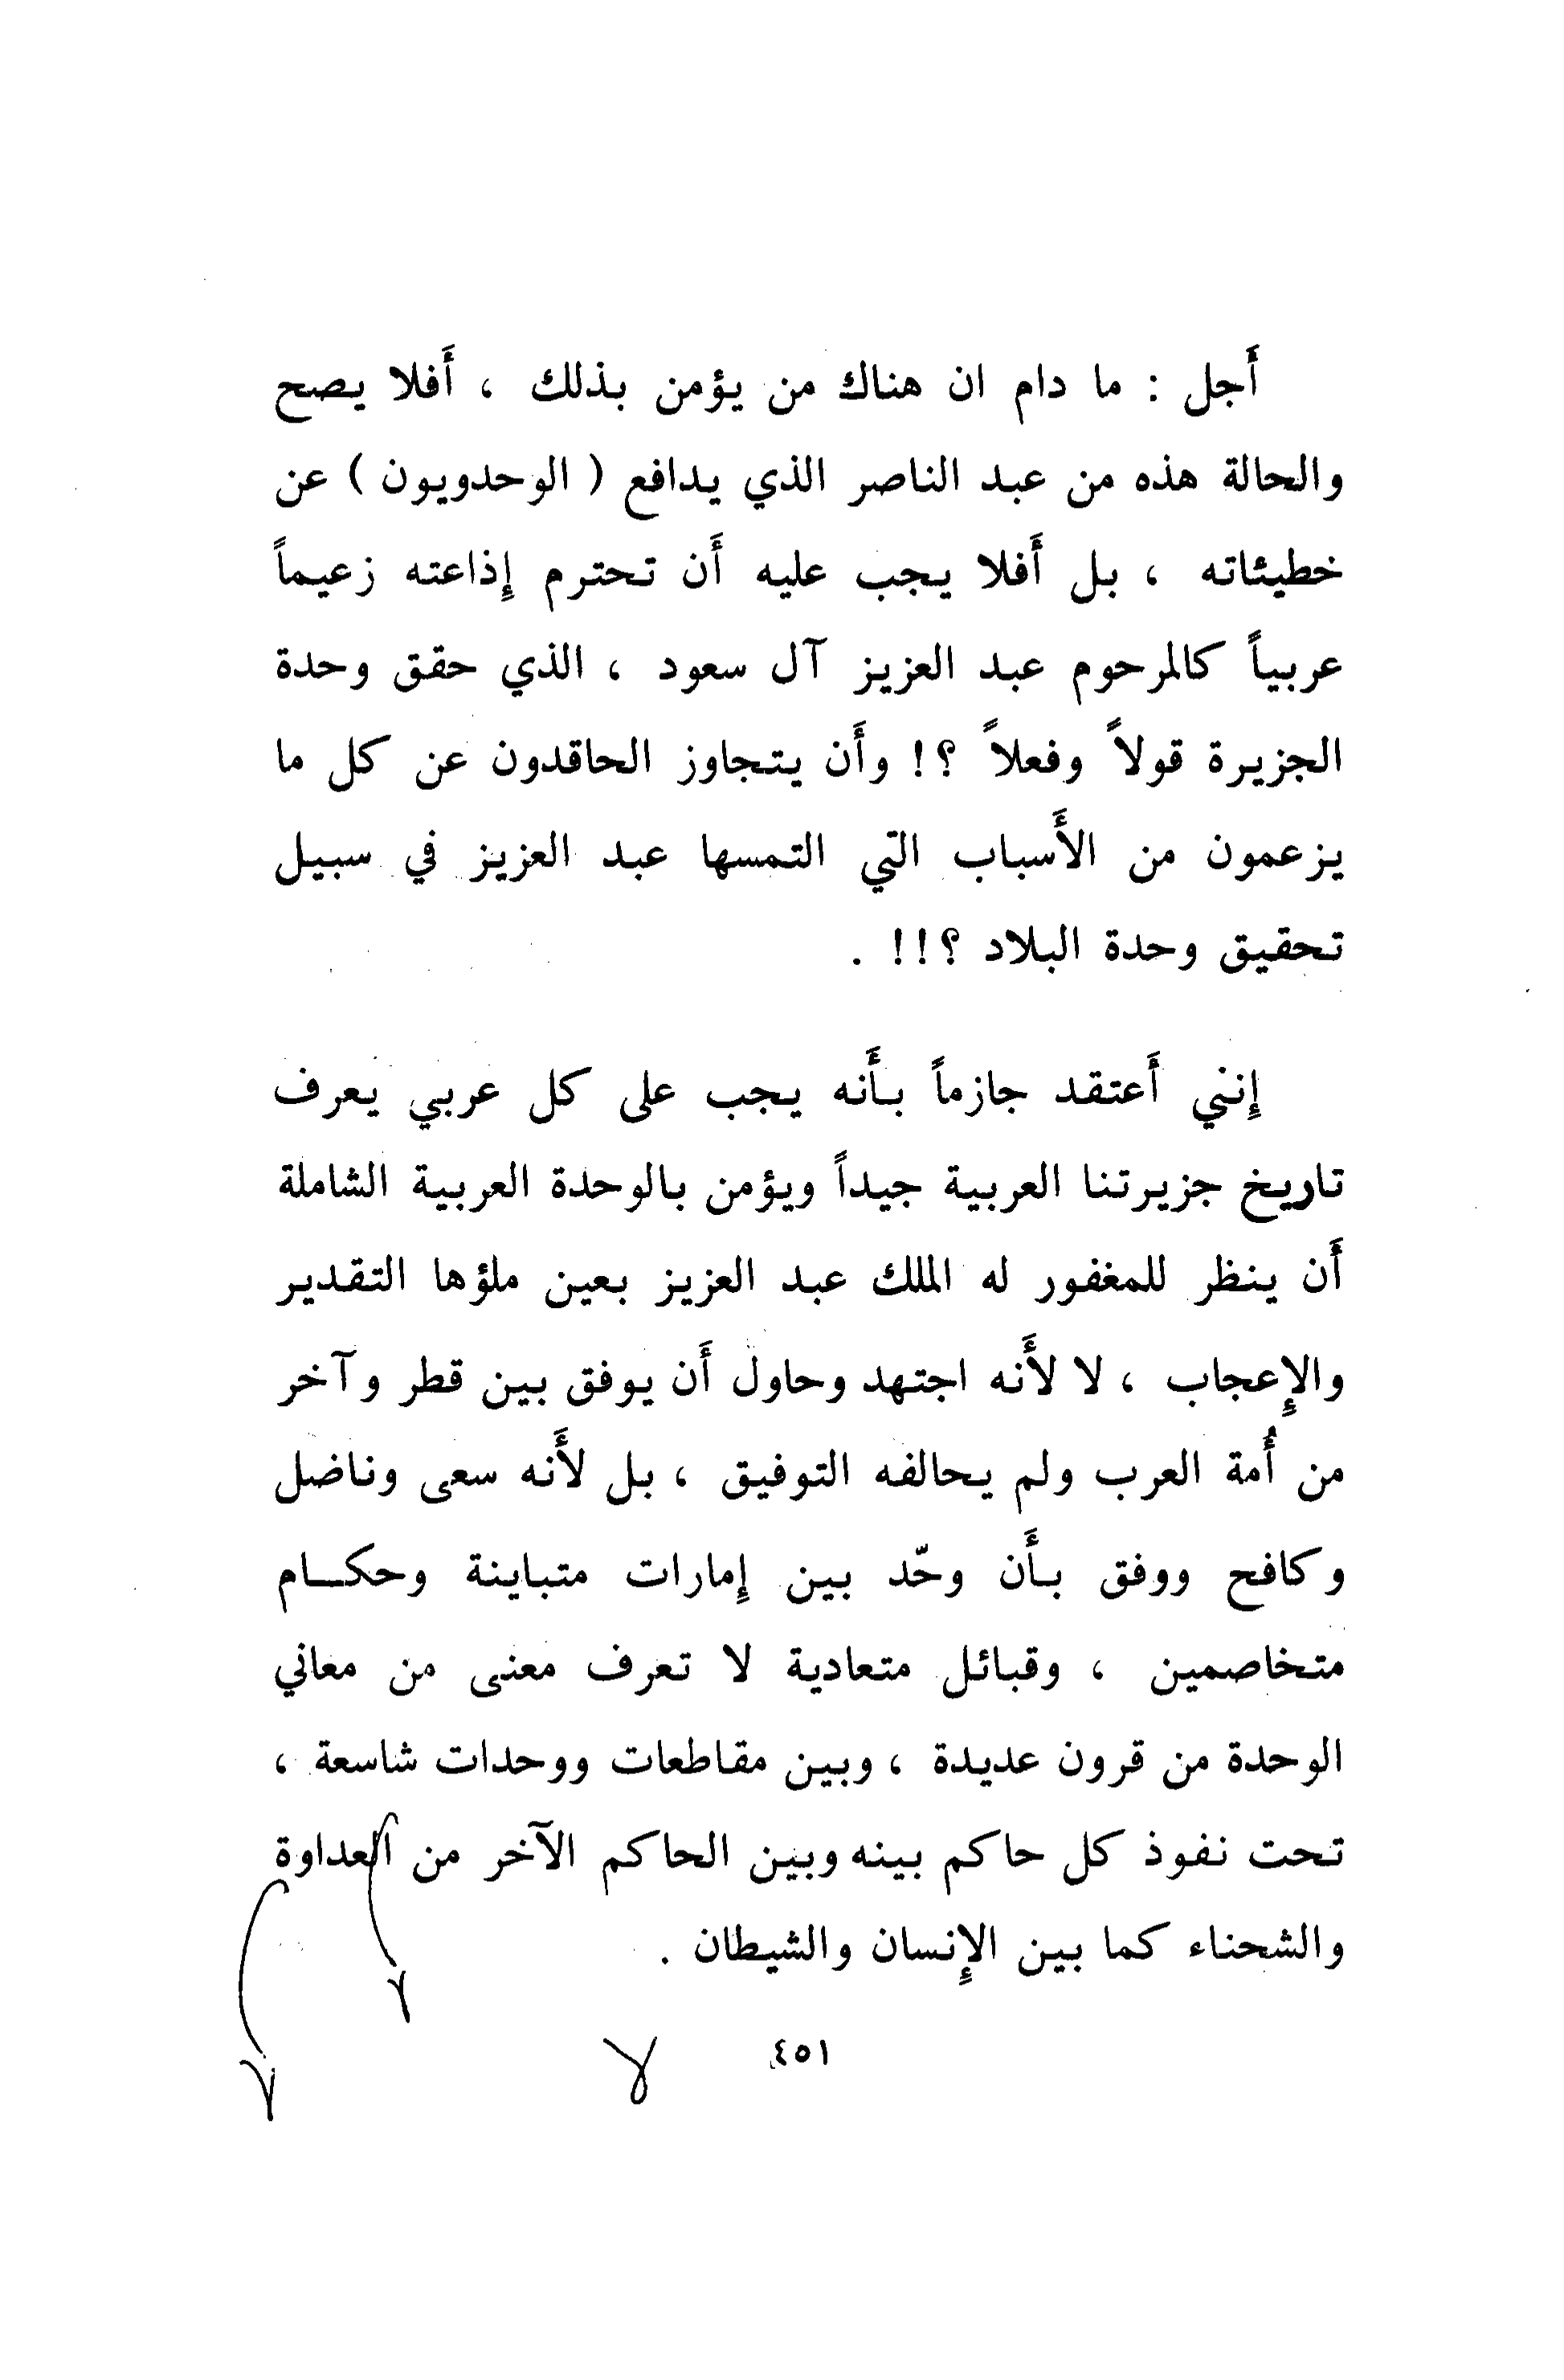 أَجل : ما دام ان هناك من يؤمن بذلك ، أَفلا يصح
والحالة هذه من عبد الناصر الذي يدافع ( الوحدويون ) عن
خطيئاته ، بل أَفلا يجب عليه أَن تحترم إِذاعته زعيماً
عربياً كالمرحوم عبد العزيز آل سعود ، الذي حقق وحدة
الجزيرة قولاً وفعلاً ؟! وأَن يتجاوز الحاقدون عن كل ما
يزعمون من الأَسباب التي التمسها عبد العزيز في سبيل
تحقيق وحدة البلاد ؟!! .
إِنني أَعتقد جازماً بأَنه يجب على كل عربي يعرف
تاريخ جزيرتنا العربية جيداً ويؤمن بالوحدة العربية الشاملة
أَن ينظر للمغفور له الملك عبد العزيز بعين ملؤها التقدير
والإِعجاب ، لا لأَنه اجتهد وحاول أَن يوفق بين قطر وآخر
من أُمة العرب ولم يحالفه التوفيق ، بل لأَنه سعى وناضل
وكافح ووفق بأَن وحّد بين إِمارات متباينة وحكـام
متخاصمين ، وقبائل متعادية لا تعرف معنى من معاني
الوحدة من قرون عديدة ، وبين مقاطعات ووحدات شاسعة ،
تحت نفوذ كل حاكم بينه وبين الحاكم الآخر من العداوة
والشحناء كما بين الإِنسان والشيطان .
٤٥١